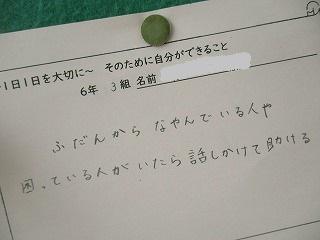 1日1日を大切に～ そのために自分ができること
6年 3組 名前
ふだんから なやんでいる人や
困っている人がいたら話しかけて助ける